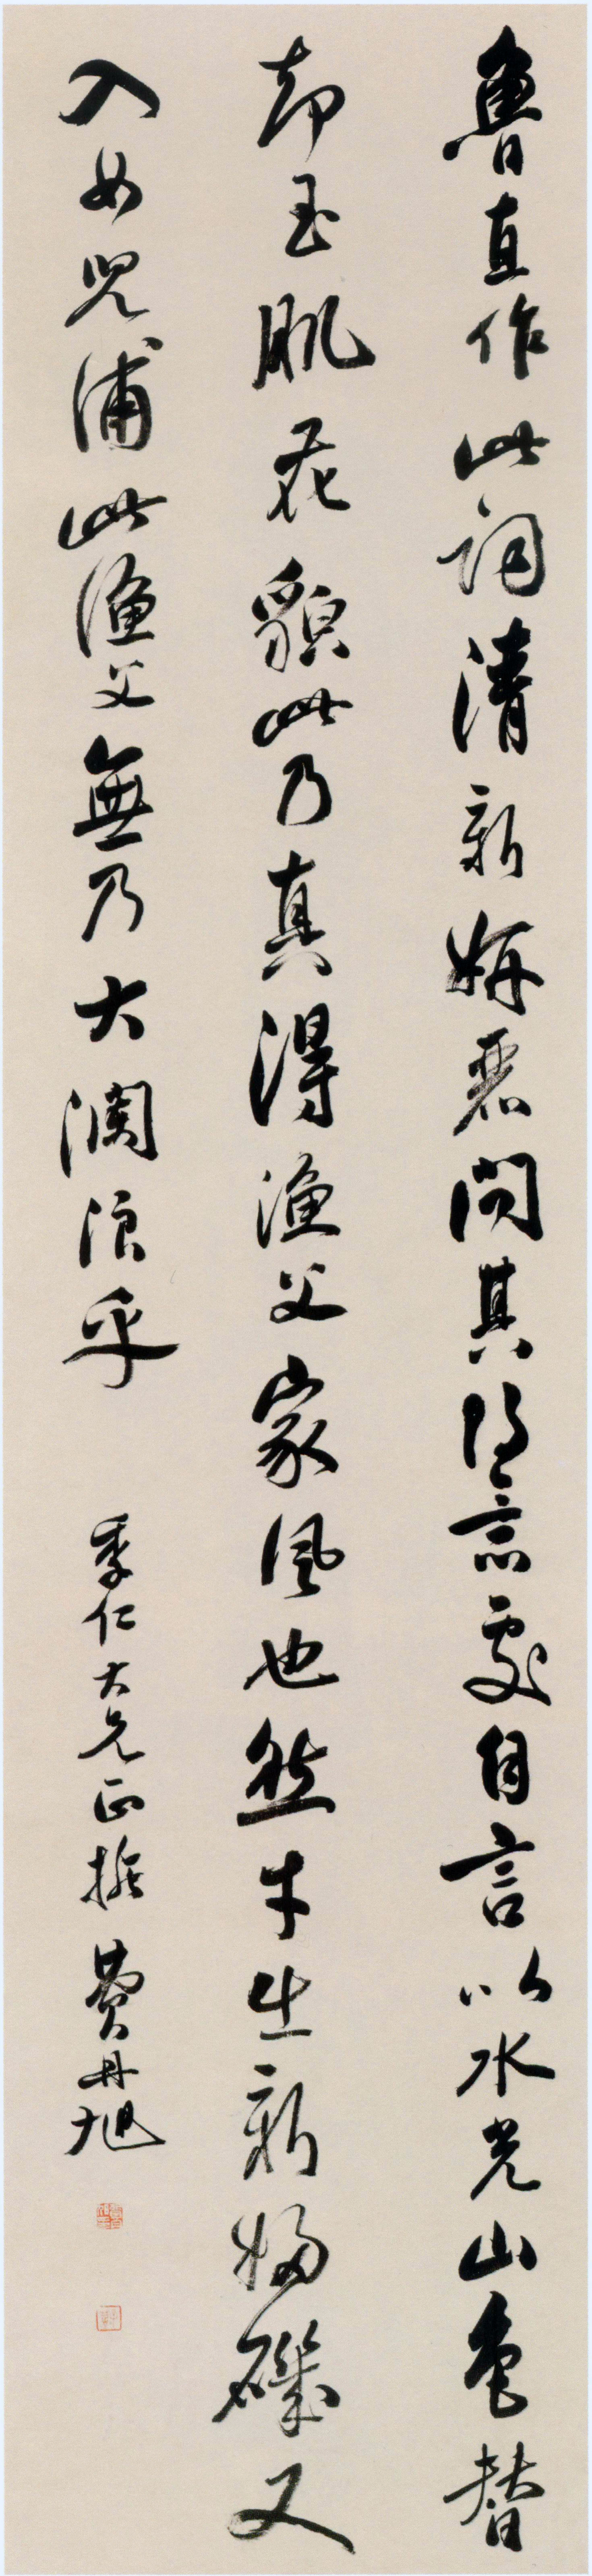 魯直作此詞清新婉麗問其得意處自言以水光山色替
却玉肌花貌此乃真得漁父家風也然才出新婦磯又
入女兒浦此漁父無乃大瀾浪乎
季仁大兄正振 費丹旭